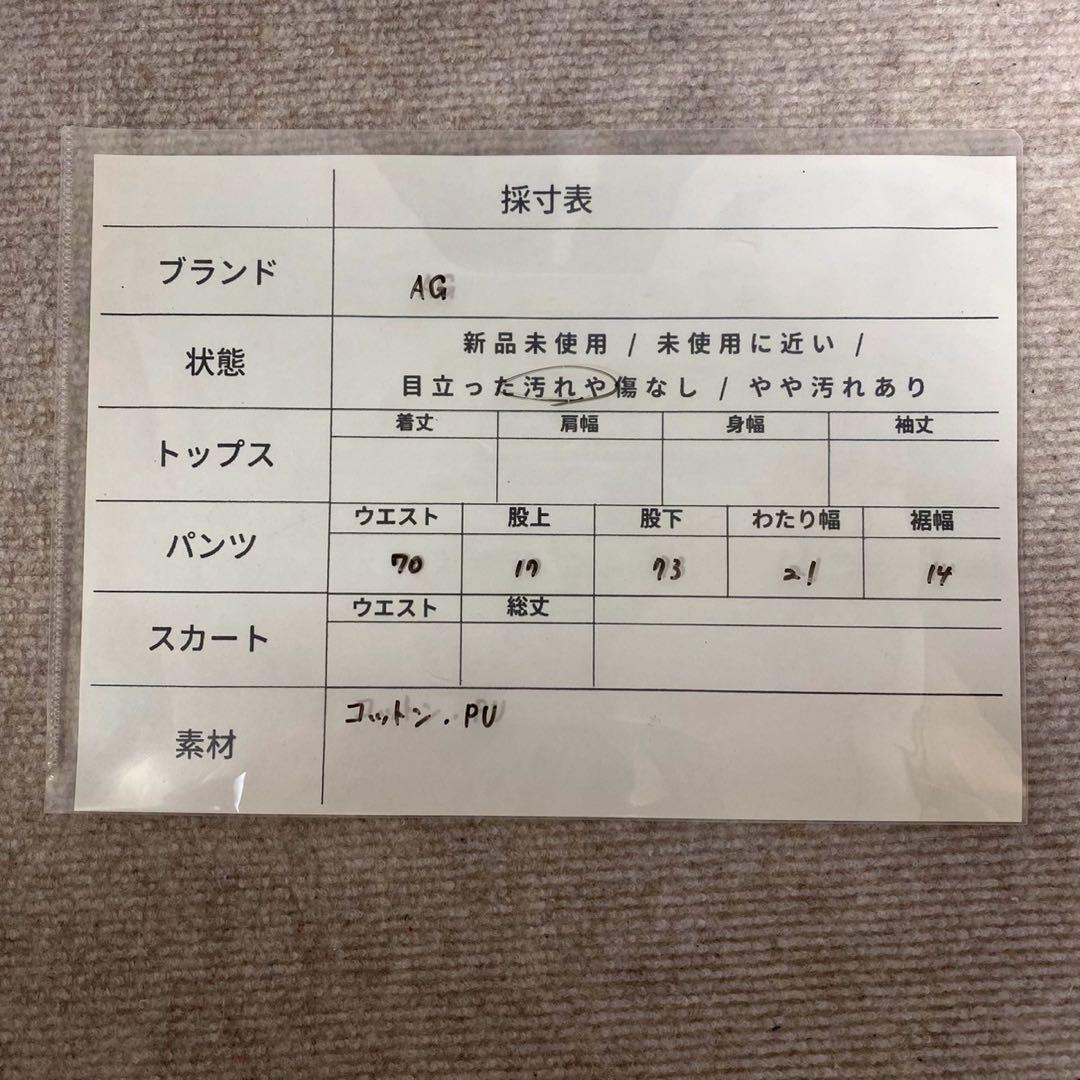 採寸表
ブランド
AG
状態
新品未使用 / 未使用に近い /
目立った汚れや傷なし / やや汚れあり
トップス
着丈 肩幅 身幅 袖丈
パンツ
ウエスト 股上 股下 わたり幅 裾幅
70 17 73 21 14
スカート
ウエスト 総丈
素材
コットン.PU